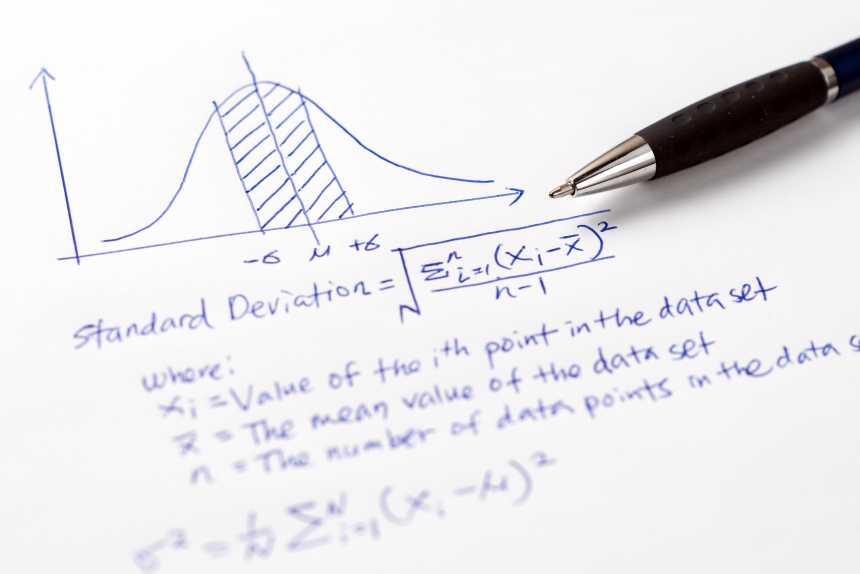 -σ μ +σ
Standard Deviation = √(Σⁿᵢ₌₁(xᵢ-x̄)²/(n-1))
where:
xᵢ = Value of the iᵗʰ point in the data set
x̄ = The mean value of the data set
n = The number of data points in the data
σ² = 1/N Σᴺᵢ₌₁(xᵢ-μ)²